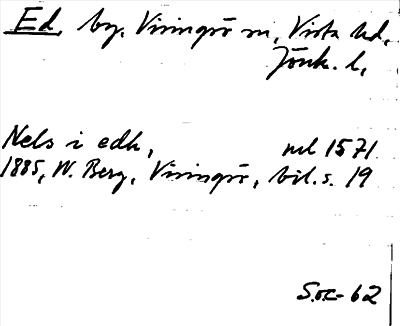 Ed, by. Visingsö sn, Vista hd,
Jönk. l,
Nels i edh, ml 1571
1885, W. Berg, Visingsö, bil. s. 19
Soc-62